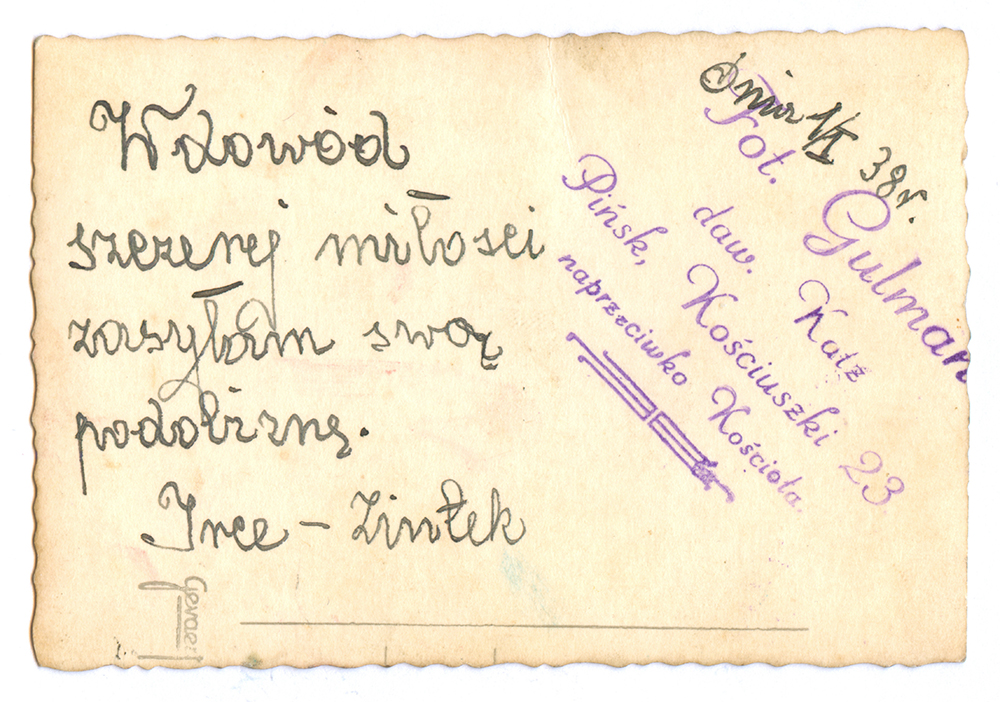 Dnia 38r.
W dowód
szczerej miłości
zasyłam swą
podobiznę.
Irce – Ziutek
Fot. Gulman
daw. Katz
Pińsk, Kościuszki 23
naprzeciwko Kościoła.
Gevaert